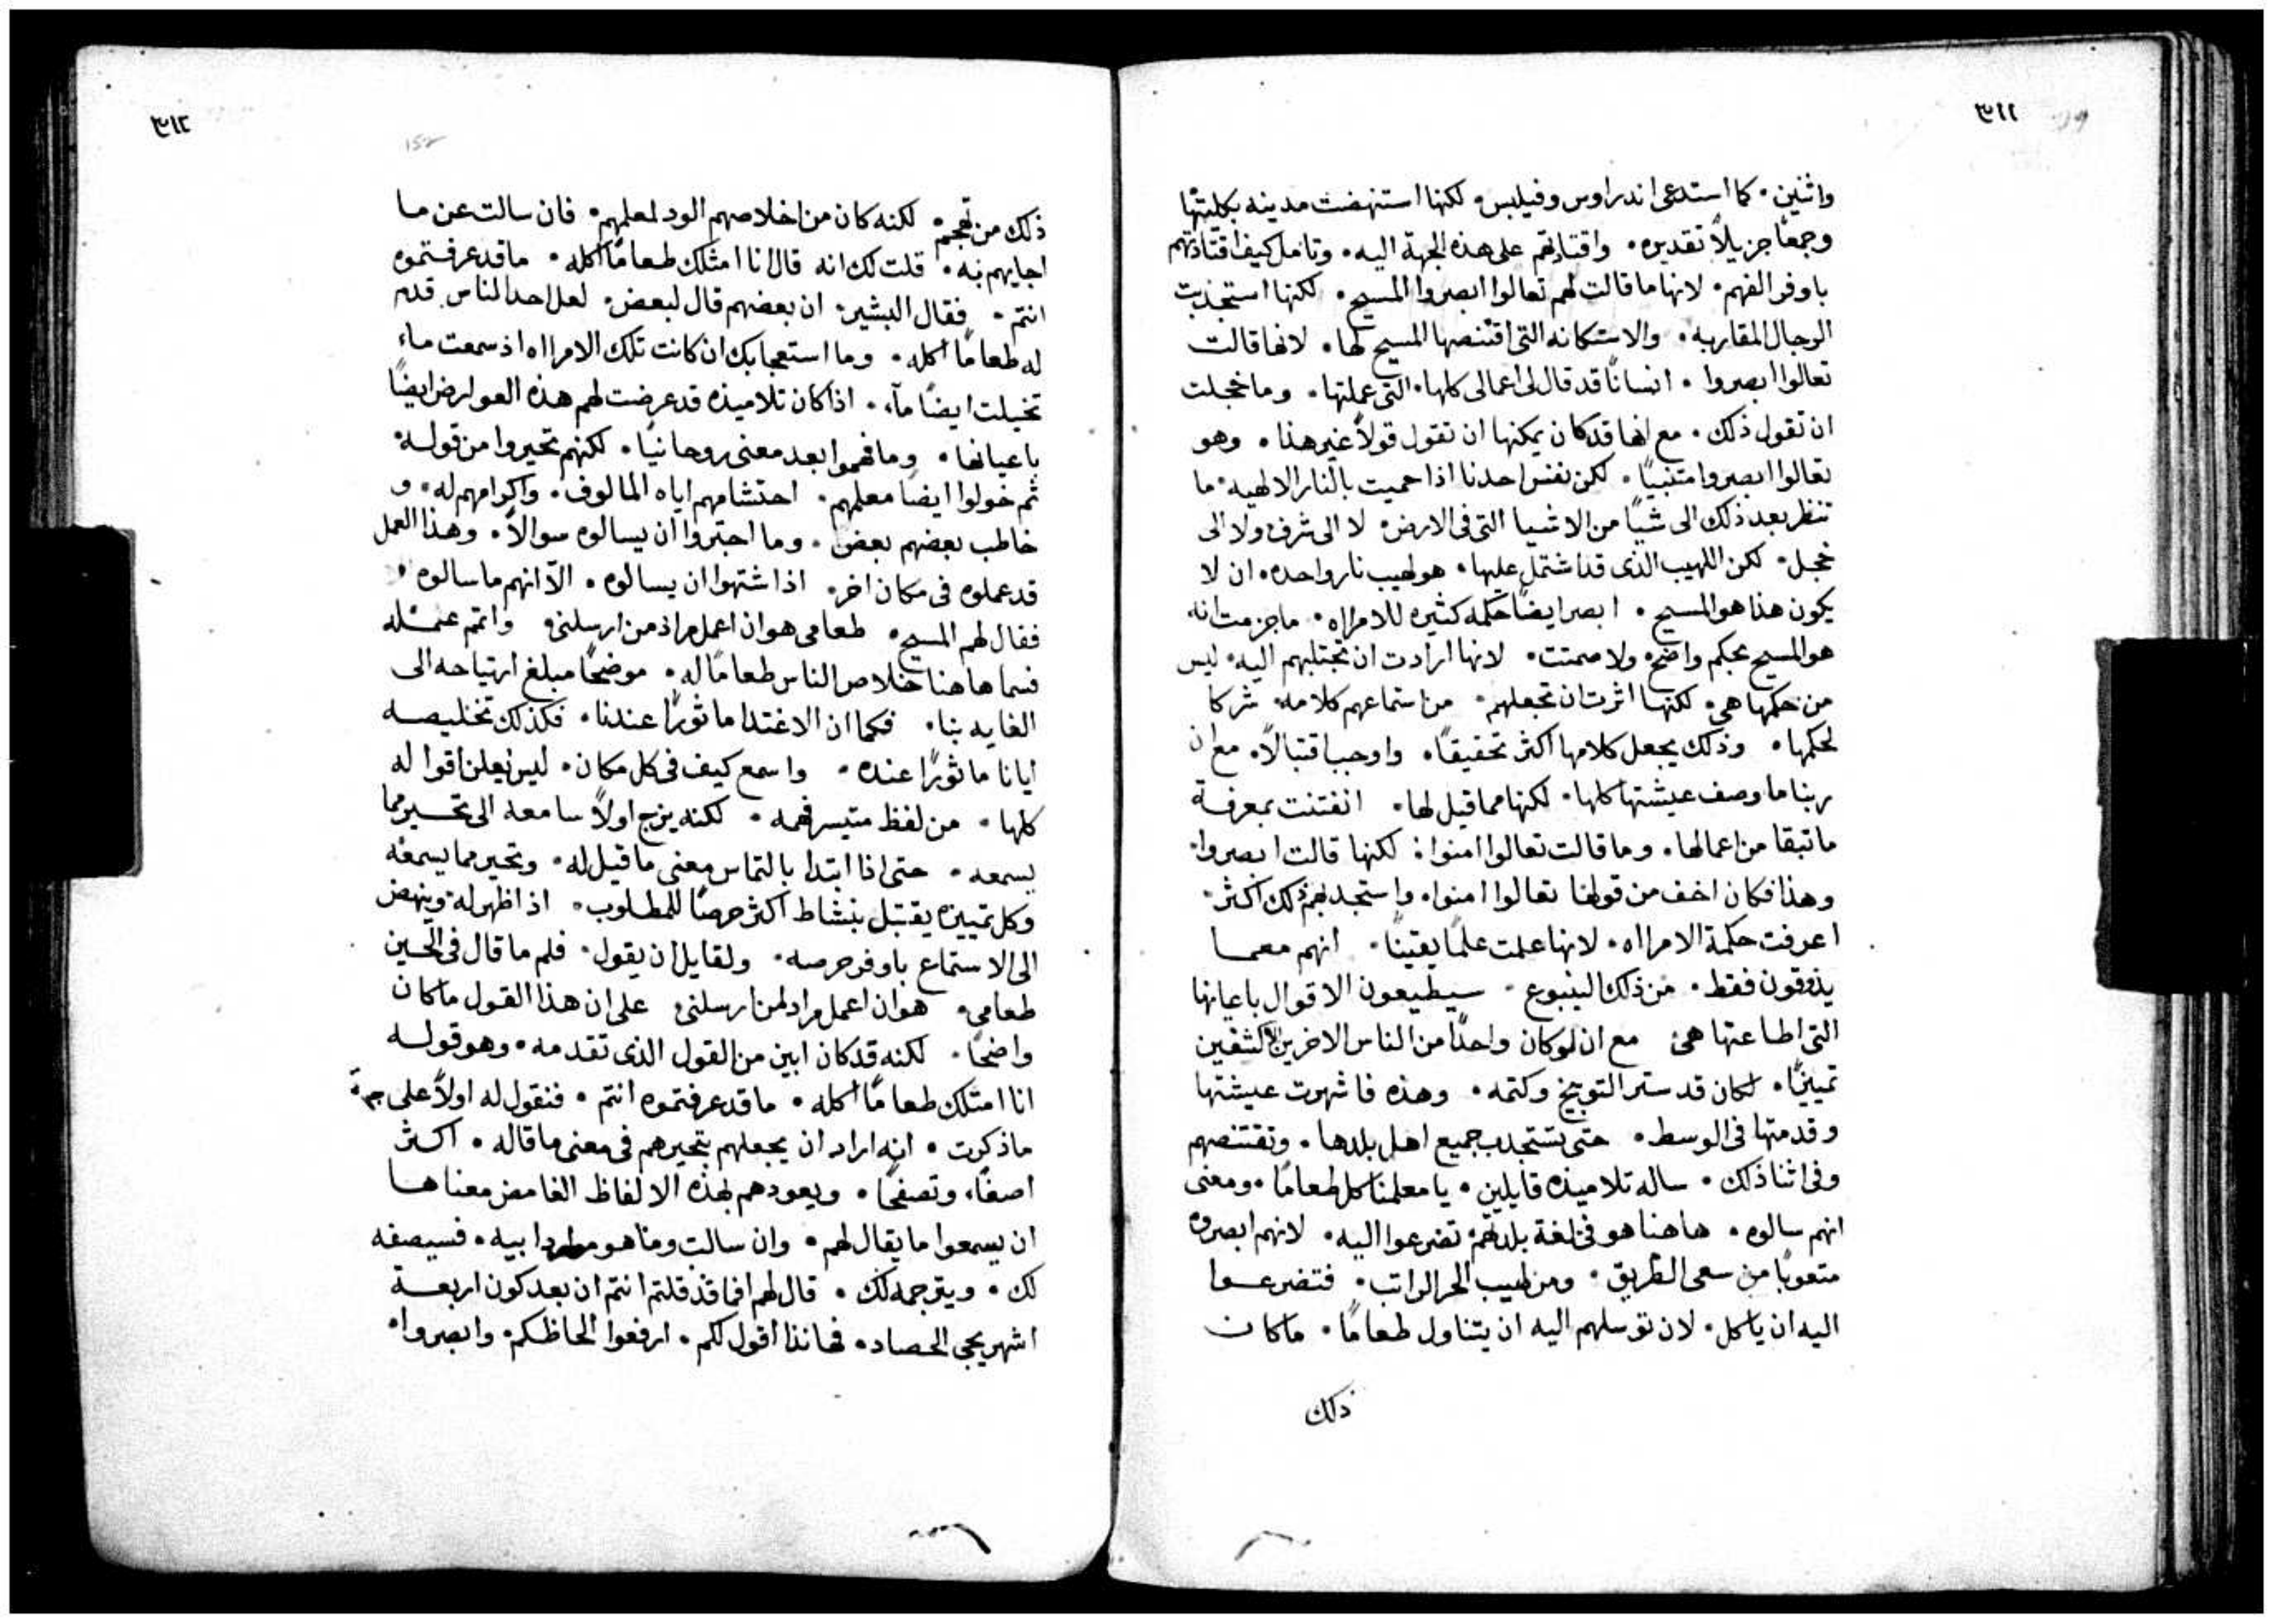 ٣١١
واثنين. كما استدعى اندراوس وفيلبس. لكنها استنهضت مدينه بكليتها
وجمعًا جزيلاً تقديره. واقتادتهم على هذه الجهة اليه. وتامل كيف اقتادتهم
باوفر الفهم. لانها ما قالت لهم تعالوا ابصروا المسيح. لكنها استجذبت
الرجال المقاربه. والاستكانه التى اقتنصها المسيح لها. لانها قالت
تعالوا ابصروا. انسانًا قد قال لى اعمالى كلها. التى عملتها. وما خجلت
ان تقول ذلك. مع انها قد كان يمكنها ان تقول قولاً غير هذا. وهو
تعالوا ابصروا متنبيًا. لكن نفس احدنا اذا حميت بالنار الالهيه. ما
تنظر بعد ذلك الى شيًا من الاشيا التى فى الارض. لا الى شرف ولا الى
خجل. لكن اللهيب الذى قد اشتمل عليها. هو لهيب نار واحده. ان لا
يكون هذا هو المسيح. ابصر ايضًا حكمه كثيره للامراه. ما جزمت انه
هو المسيح بحكم واضح. ولا صمتت. لانها ارادت ان تجتلبهم اليه. ليس
من حكمها هى. لكنها اثرت ان تجعلهم. من استماعهم كلامه. شركا
لحكمها. وذلك يجعل كلامها اكثر تحقيقًا. واوجب اقتبالاً. مع ان
ربنا ما وصف عيشتها كلها. لكنها مما قيل لها. انفتنت بمعرفة
ما تبقا من اعمالها. وما قالت تعالوا امنوا. لكنها قالت ابصروا.
وهذا فكان اخف من قولها تعالوا امنوا. واستجدبهم ذلك اكثر.
اعرفت حكمة الامرااه. لانها علمت علمًا يقينًا. انهم معما
يذوقون فقط. من ذلك الينبوع. سيطيعون الاقوال باعيانها
التى اطاعتها هى. مع ان لو كان واحدًا من الناس الاخرين الكثفين
تمييزًا. لكان قد ستر التوبيخ وكتمه. وهذه فاشهرت عيشتها
وقدمتها فى الوسط. حتى تستجدب جميع اهل بلدها. وتقتنصهم
وفى اثنا ذلك. ساله تلاميذه قايلين. يا معلمنا كل طعامًا. ومعنى
انهم سالوه. هاهنا هو فى لغة بلدهم. تضرعوا اليه. لانهم ابصروه
متعوبًا من سعى الطريق. ومن لهيب الحر الراتب. فتضرعوا
اليه ان ياكل. لان توسلهم اليه ان يتناول طعامًا. ما كان
ذلك
٣١٢
ذلك من تهجم. لكنه كان من اخلاصهم الود لمعلمهم. فان سالت عن ما
اجابهم به. قلت لك انه قال انا امتلك طعامًا اكله. ما قد عرفتموه
انتم. فقال البشير. ان بعضهم قال لبعض. لعل احد الناس قدم
له طعامًا اكله. وما استعجابك ان كانت تلك الامرااه اذ سمعت ماء
تخيلت ايضًا مآء. اذا كان تلاميذه قد عرضت لهم هذه العوارض ايضًا
باعيانها. وما فهموا بعد معنى روحانيًا. لكنهم تحيروا من قوله.
ثم خولوا ايضًا معلمهم. احتشامهم اياه المالوف. واكرامهم له. و
خاطب بعضهم بعض. وما اجتروا ان يسالوه سوالاً. وهذا العمل
قد عملوه فى مكان اخر. اذا اشتهوا ان يسالوه. الا انهم ما سالوه.
فقال لهم المسيح. طعامى هو ان اعمل مراد من ارسلنى. واتمم عمله
فسما هاهنا خلاص الناس طعامًا له. موضحًا مبلغ ارتياحه الى
الغايه بنا. فكما ان الاغتدا ماثورًا عندنا. فكذلك تخليصه
ايانا ماثورًا عنده. واسمع كيف فى كل مكان. ليس يعلن اقواله
كلها. من لفظ متيسر فهمه. لكنه يزج اولاً سامعه الى تحير مما
يسمعه. حتى اذا ابتدا بالتماس معنى ما قيل له. وتحير مما يسمعه
وكل تمييزه يقتبل بنشاط اكثر حرصًا للمطلوب. اذا ظهر له. وينهض
الى الاستماع باوفر حرصه. ولقايل ان يقول. فلم ما قال فى الحين
طعامى. هو ان اعمل مراد لمن ارسلنى. على ان هذا القول ما كان
واضحًا. لكنه قد كان ابين من القول الذى تقدمه. وهو قوله
انا امتلك طعامًا اكله. ما قد عرفتموه انتم. فنقول له اولاً على جهة
ما ذكرت. انه اراد ان يجعلهم بتحيرهم فى معنى ما قاله. اكثر
اصغاء. وتصفحًا. ويعودهم بهذه الالفاظ الغامض معناها
ان يسمعوا ما يقال لهم. وان سالت وما هو مراد ابيه. فسيصفه
لك. ويترجمه لك. قال لهم افما قد قلتم انتم ان بعد كون اربعة
اشهر يجى الحصاد. فهانذا اقول لكم. ارفعوا الحاظكم. وابصروا.